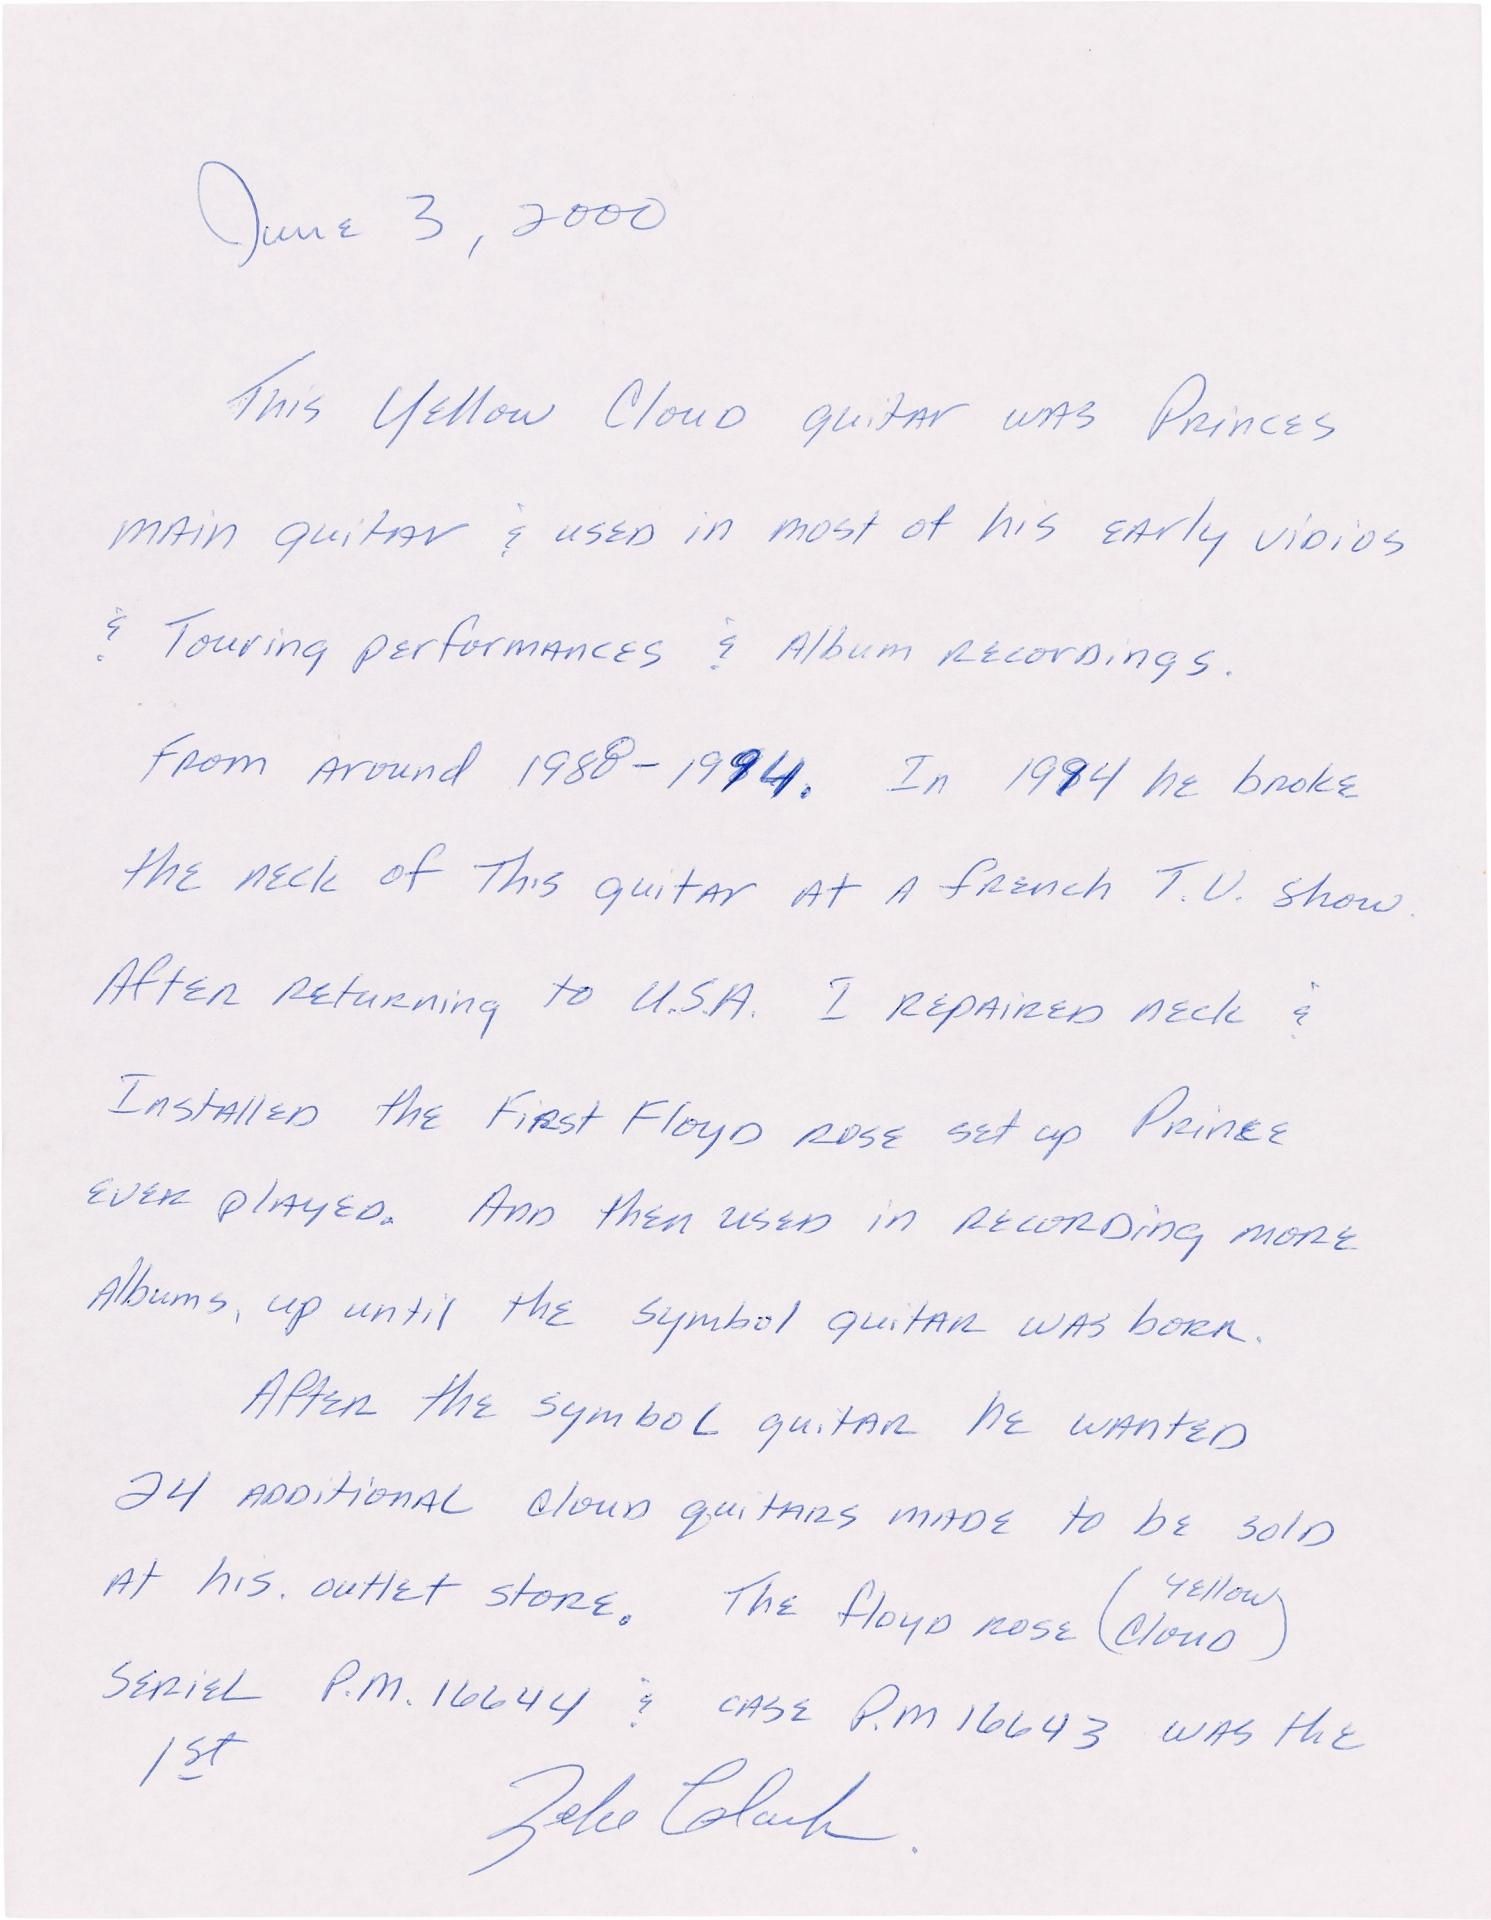 June 3, 2000
This Yellow Cloud guitar was Princes
main guitar & used in most of his early vidios
& Touring performances & Album recordings.
From around 1988-1994. In 1994 he broke
the neck of This guitar at a french T.V. show.
After returning to U.S.A. I repaired neck &
Installed the First Floyd rose set up Prince
ever played. And then used in recording more
Albums, up until the symbol guitar was born.
After the symbol guitar he wanted
24 additional cloud guitars made to be sold
at his. outlet store. The floyd rose (Yellow Cloud)
seriel P.M. 16644 & case P.M 16643 was the
1st
Zeke Clark.